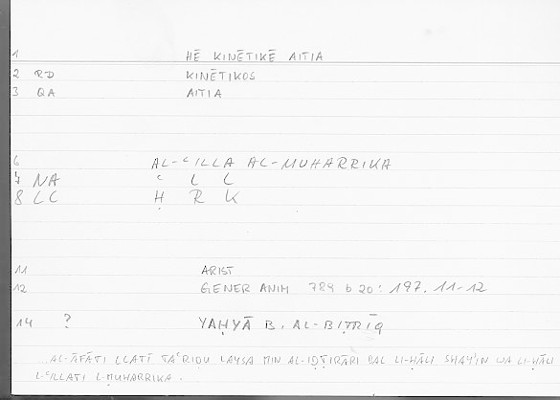 1 HĒ KINĒTIKĒ AITIA
2 RD KINĒTIKOS
3 QA AITIA
6 AL-ʿILLA AL-MUHARRIKA
7 NA ʿ L L
8 LC Ḥ R K
11 ARIST
12 GENER ANIM 789 b 20: 197. 11-12
14 ? YAḤYĀ B. AL-BIṬRĪQ
AL-ĀFĀTI LLATĪ TAʿRIḌU LAYSA MIN AL-IḌṬIRĀRI BAL LI-ḤĀLI SHAYʾIN WA LI-ḤĀLI
L-ʿILLATI L-MUḤARRIKA.